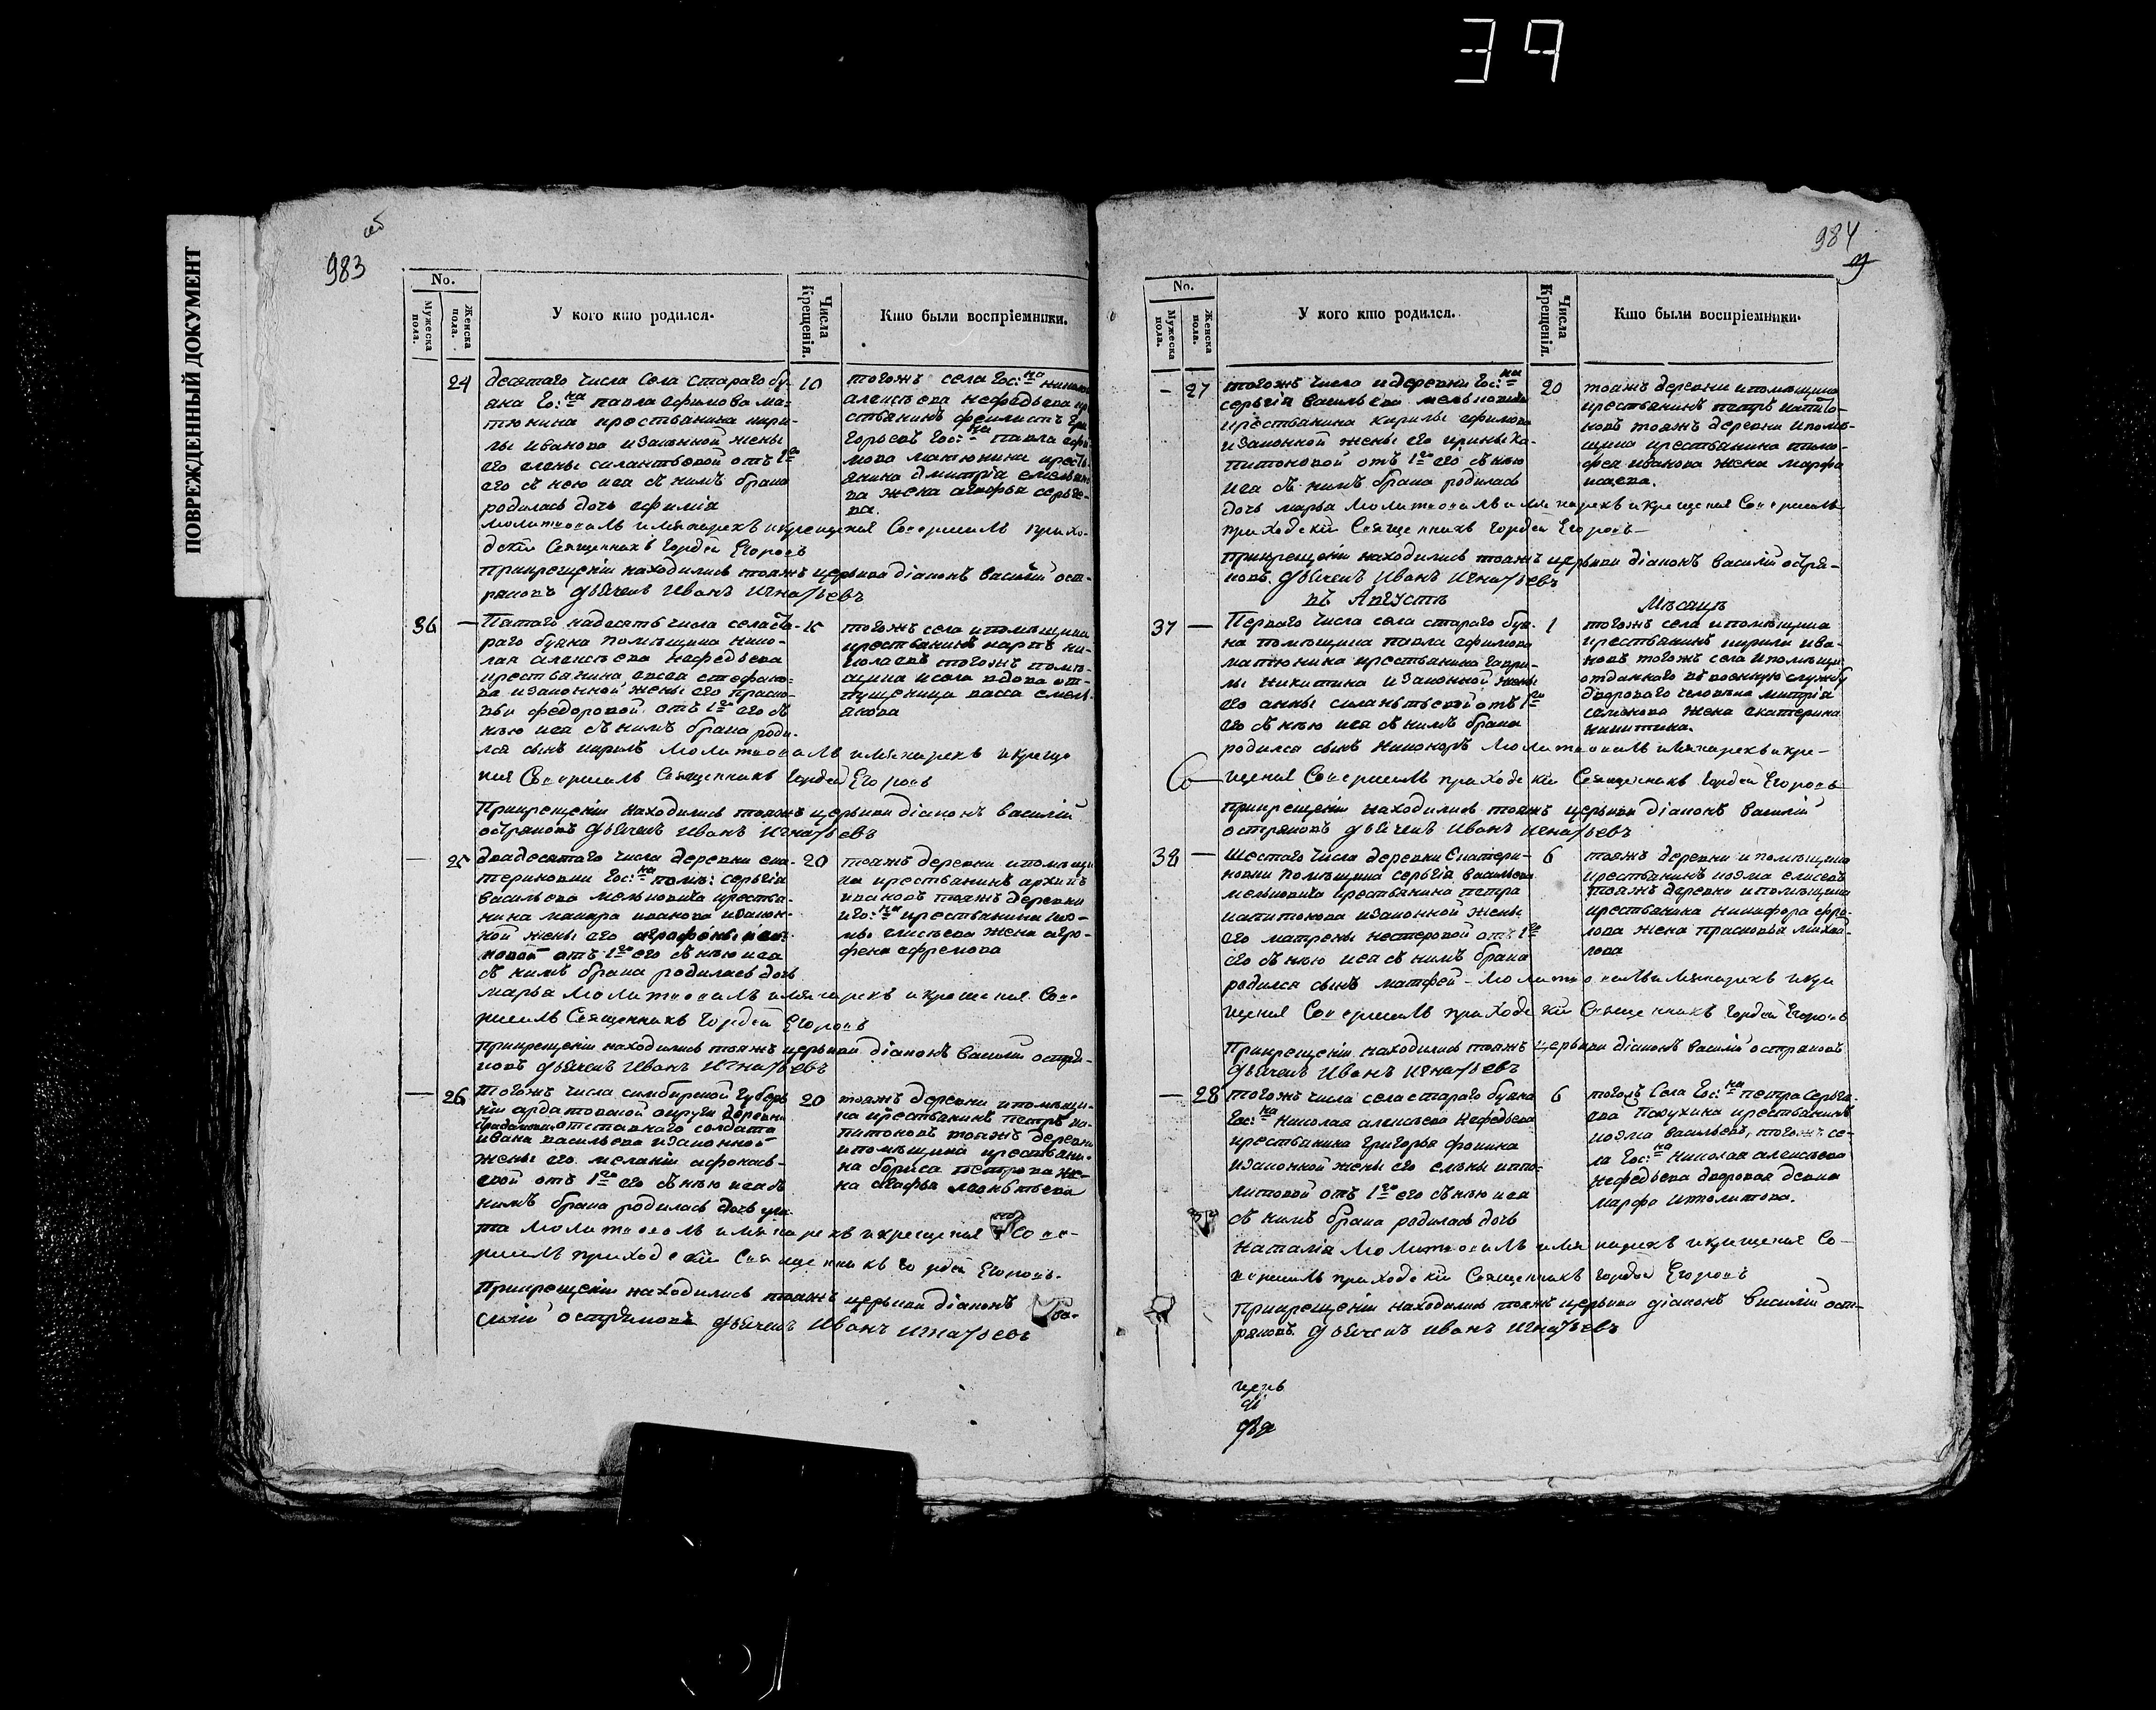 39
ПОВРЕЖДЕННЫЙ ДОКУМЕНТ
983
No.
Мужеска пола.
Женска пола.
У кого кто родился.
Числа Крещенія.
Кто были воспріемники.
24
десятаго числа села стараго бу-
яна Го:на павла ефимова ма-
тюнина крестьянина кири-
лы иванова изаконной жены
его елены силантьевой отъ 1го
его съ нею иea съ нимъ брака
родилась дочь ефимія
молитвовалъ имя нарекъ икрещения Совершилъ прихо-
дский Священникъ Гордей Егоровъ
Прикрещеніи находились тояжъ церькви діаконъ василий ост-
ряковъ дьячекъ Иванъ Игнатьевъ
10
тогожъ села Гос:на никола
алексѣева нефедьева кр
стьянинъ феликстъ Гри
горьевъ Гос:на павла ефи
мова матюнина кресть
янина дмитрія емельяно
ва жена агафья серьге-
ва.
36
Пятаго надесять числа села Ста-
раго буяна помѣщика нико-
лая алексѣева нефедьева
крестьянина евсея стефано-
ва изаконной жены его праско-
вьи федоровой отъ 1го его съ
нѣю иea съ нимъ брака роди-
лся сынъ кирилъ молитвовалъ имя нарекъ икреще
ния Совершилъ Священникъ Гордей Егоровъ
Прикрещеніи находились тояжъ церькви діаконъ василій
остряковъ дьячекъ Иванъ Игнатьевъ
15
тогожъ села ипомѣщика
крестьянинъ карпъ ни-
колаевъ тогожъ помѣ-
щика исела вдова от-
пущеница васса емель-
янова
25
двадесятаго числа деревни ека-
териновки Гос:на помѣ: серьгія
васильева мельковича крестья-
нина макара иванова изакон-
ной жены его агрофены
отъ 1го его съ нѣю иea
съ нимъ брака родилась дочь
марья молитвовалъ имя нарекъ икрещения Сове
ршилъ Священникъ Гордей Егоровъ
прикрещеніи находились тояжъ церькви діаконъ василий остря-
ковъ дьячекъ Иванъ Игнатьевъ
20
тояжъ деревни ипомѣщи
ка крестьянинъ архипъ
ивановъ тояжъ деревни
иГо:на крестьянина
елисѣева жена агро-
фена ефремова
26
Тогожъ числа симбирской Губерь
ніи ардатовской округи деревни
отставнаго солдата
ивана васильева изаконной
жены его меланіи афонась-
евой отъ 1го его съ нѣю иea съ
нимъ брака родилась дочь ули
та молитвовалъ имя нарекъ икрещения Сове-
ршилъ приходский Священникъ Гордей Егоровъ.
Прикрещеніи находились тояжъ церькви діаконъ ва-
силій остряковъ дьячекъ Иванъ Игнатьевъ
20
тояжъ деревни ипомѣщи-
ка крестьянинъ петръ ка-
питоновъ тояжъ деревни
ипомѣщика крестьяни-
на бориса петрова же-
на агафья леоньтьева
984
No.
Мужеска пола.
Женска пола.
У кого кто родился.
Числа Крещенія.
Кто были воспріемники.
27
тогожъ числа идеревни Гос:на
серьгія васильева мельковича
крестьянина кирилы ефимова
изаконной жены его ирины ка-
питоновой отъ 1го его съ нѣю
иea съ нимъ брака родилась
дочь марья молитвовалъ имя нарекъ икрещения Совершилъ
приходский Священникъ Гордей Егоровъ
прикрещеніи находились тояжъ церькви діаконъ василій остря-
ковъ. дьячекъ Иванъ Игнатьевъ
20
тояжъ деревни ипомѣщика
крестьянинъ петръ капито-
новъ тояжъ деревни ипомѣ-
щика крестьянина тимо-
фея иванова жена марфа
исаева.
въ Августѣ Мѣсяцѣ
37
Перваго числа села стараго буя-
на помѣщика павла ефимова
матюнина крестьянина гаври-
лы никитина изаконной жены
его анны силаньтьевой отъ 1го
его съ нѣю иea съ нимъ брака
родился сынъ никоноръ молитвовалъ имя нарекъ икре-
щения Совершилъ приходский Священникъ Гордей Егоровъ
прикрещеніи находились тояжъ церькви діаконъ василій
остряковъ дьячекъ Иванъ Игнатьевъ
1
тогожъ села ипомѣщика
крестьянинъ кирила ива-
новъ тогожъ села ипомѣщи
отданнаго въ военную службу
двороваго человѣка митрія
семенова жена екатерина
никитина.
38
Шестаго числа деревни Екатери-
новки помѣщика серьгія васильева
мельковича крестьянина петра
капитонова изаконной жены
его матрены нестеровой отъ 1го
его съ нѣю иea съ нимъ брака
родился сынъ матфей молитвовалъ имя нарекъ икре
щения Совершилъ приходский Священникъ Гордей Егоровъ
Прикрещеніи находились тояжъ церькви діаконъ василій остряковъ
дьячекъ Иванъ Игнатьевъ
6
тояжъ деревни и помѣщика
крестьянинъ козма елисевъ
тояжъ деревни ипомѣщика
крестьянина никифора фро-
лова жена прасковья михай-
лова
28
тогожъ числа села стараго буяна
Гос:на Николая алексѣева Нефедьева
крестьянина Григорья фокина
изаконной жены его елены иппо-
литовой отъ 1го его съ нѣю иea
съ нимъ брака родилась дочь
наталія молитвовалъ имя нарекъ икрещения Со-
вершилъ приходский Священникъ Гордей Егоровъ
прикрещеніи находились тояжъ церькви діаконъ василій ост-
ряковъ. дьячекъ иванъ Игнатьевъ
6
тогожъ Села Гос:на петра Серьге-
ева крестьянинъ
козма васильевъ, тогожъ се-
ла Гос:на Николая алексѣева
нефедьева дворовая девка
марфа иполитова.
церь
ді
дья